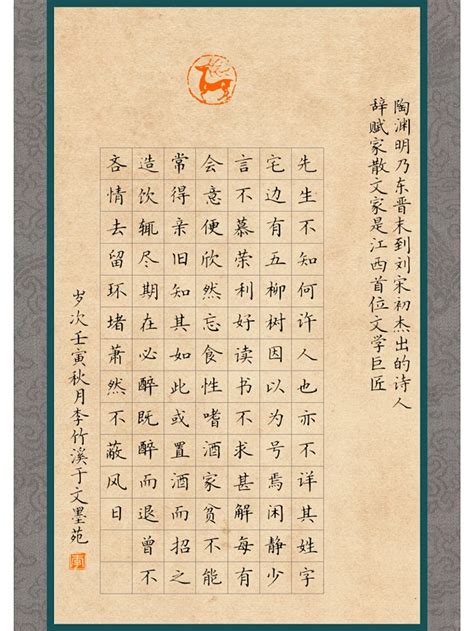 陶渊明乃东晋末到刘宋初杰出的诗人
辞赋家散文家是江西首位文学巨匠
先生不知何许人也亦不详其姓字
宅边有五柳树因以为号焉闲静少
言不慕荣利好读书不求甚解每有
会意便欣然忘食性嗜酒家贫不能
常得亲旧知其如此或置酒而招之
造饮辄尽期在必醉既醉而退曾不
吝情去留环堵萧然不蔽风日
岁次壬寅秋月李竹溪于文墨苑